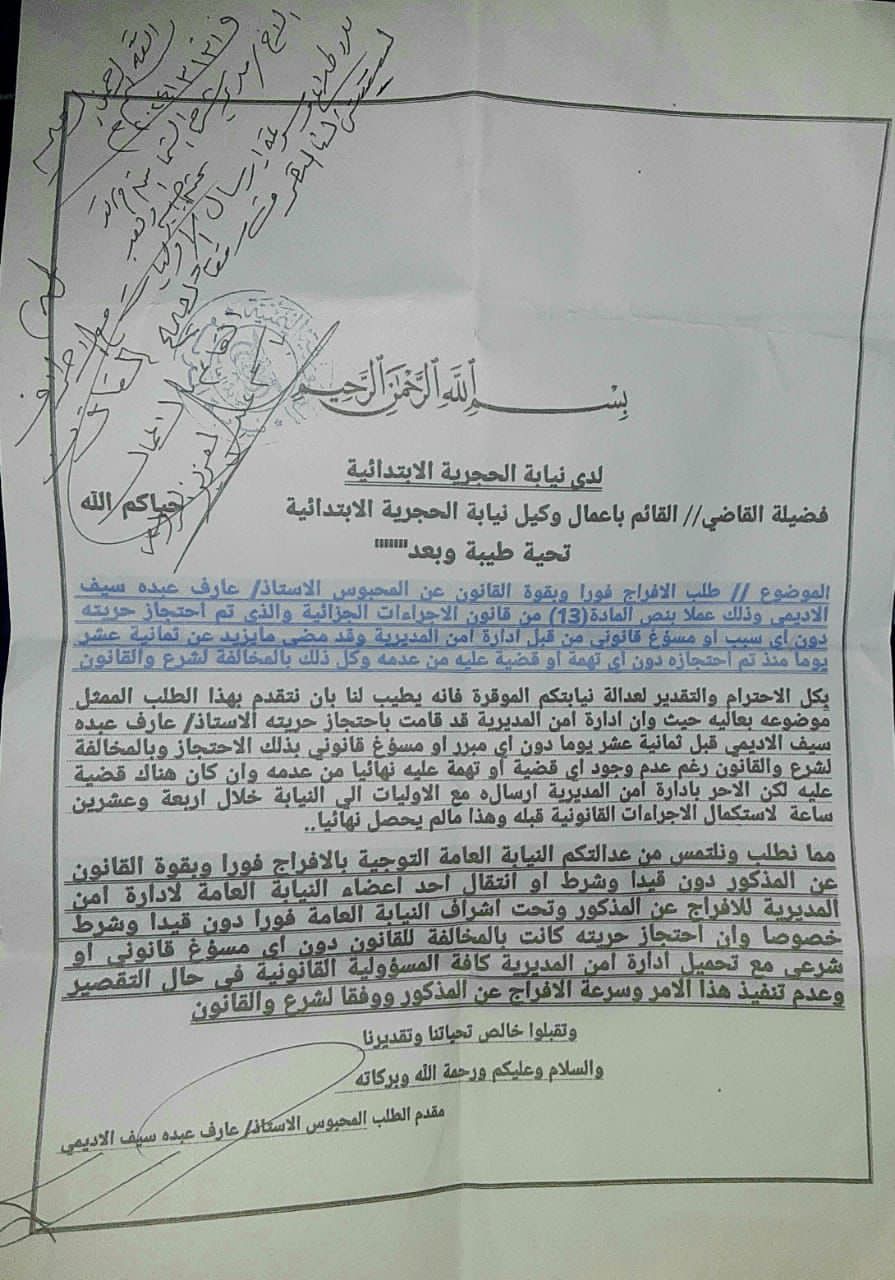 الله الرحمن
الاخ/ مدير
بسم الله الرحمن الرحيم
لدى نيابة الحجرية الابتدائية
فضيلة القاضي// القائم باعمال وكيل نيابة الحجرية الابتدائية حياكم الله
تحية طيبة وبعد""""
الموضوع // طلب الافراج فورا وبقوة القانون عن المحبوس الاستاذ/ عارف عبده سيف
الاديمي وذلك عملا بنص المادة(13) من قانون الاجراءات الجزائية والذي تم احتجاز حريته
دون اي سبب او مسؤغ قانوني من قبل ادارة امن المديرية وقد مضى مايزيد عن ثمانية عشر
يوما منذ تم احتجازه دون أي تهمة او قضية عليه من عدمه وكل ذلك بالمخالفة لشرع والقانون
بكل الاحترام والتقدير لعدالة نيابتكم الموقرة فانه يطيب لنا بان نتقدم بهذا الطلب الممثل
موضوعه بعاليه حيث وان ادارة امن المديرية قد قامت باحتجاز حريته الاستاذ/ عارف عبده
سيف الاديمي قبل ثمانية عشر يوما دون أي مبرر او مسؤغ قانوني بذلك الاحتجاز وبالمخالفة
لشرع والقانون رغم عدم وجود اي قضية أو تهمة عليه نهائيا من عدمه وان كان هناك قضية
عليه لكن الاحر بادارة امن المديرية ارساله مع الاوليات الي النيابة خلال اربعة وعشرين
ساعة لاستكمال الاجراءات القانونية قبله وهذا مالم يحصل نهائيا..
مما نطلب ونلتمس من عدالتكم النيابة العامة التوجية بالافراج فورا وبقوة القانون
عن المذكور دون قيدا وشرط او انتقال احد اعضاء النيابة العامة لادارة امن
المديرية للافراج عن المذكور وتحت اشراف النيابة العامة فورا دون قيدا وشرط
خصوصا وان احتجاز حريته كانت بالمخالفة للقانون دون اي مسؤغ قانوني او
شرعي مع تحميل ادارة امن المديرية كافة المسؤولية القانونية في حال التقصير
وعدم تنفيذ هذا الامر وسرعة الافراج عن المذكور ووفقا لشرع والقانون
وتقبلوا خالص تحياتنا وتقديرنا
والسلام وعليكم ورحمة الله وبركاته
مقدم الطلب المحبوس الاستاذ/ عارف عبده سيف الاديمي